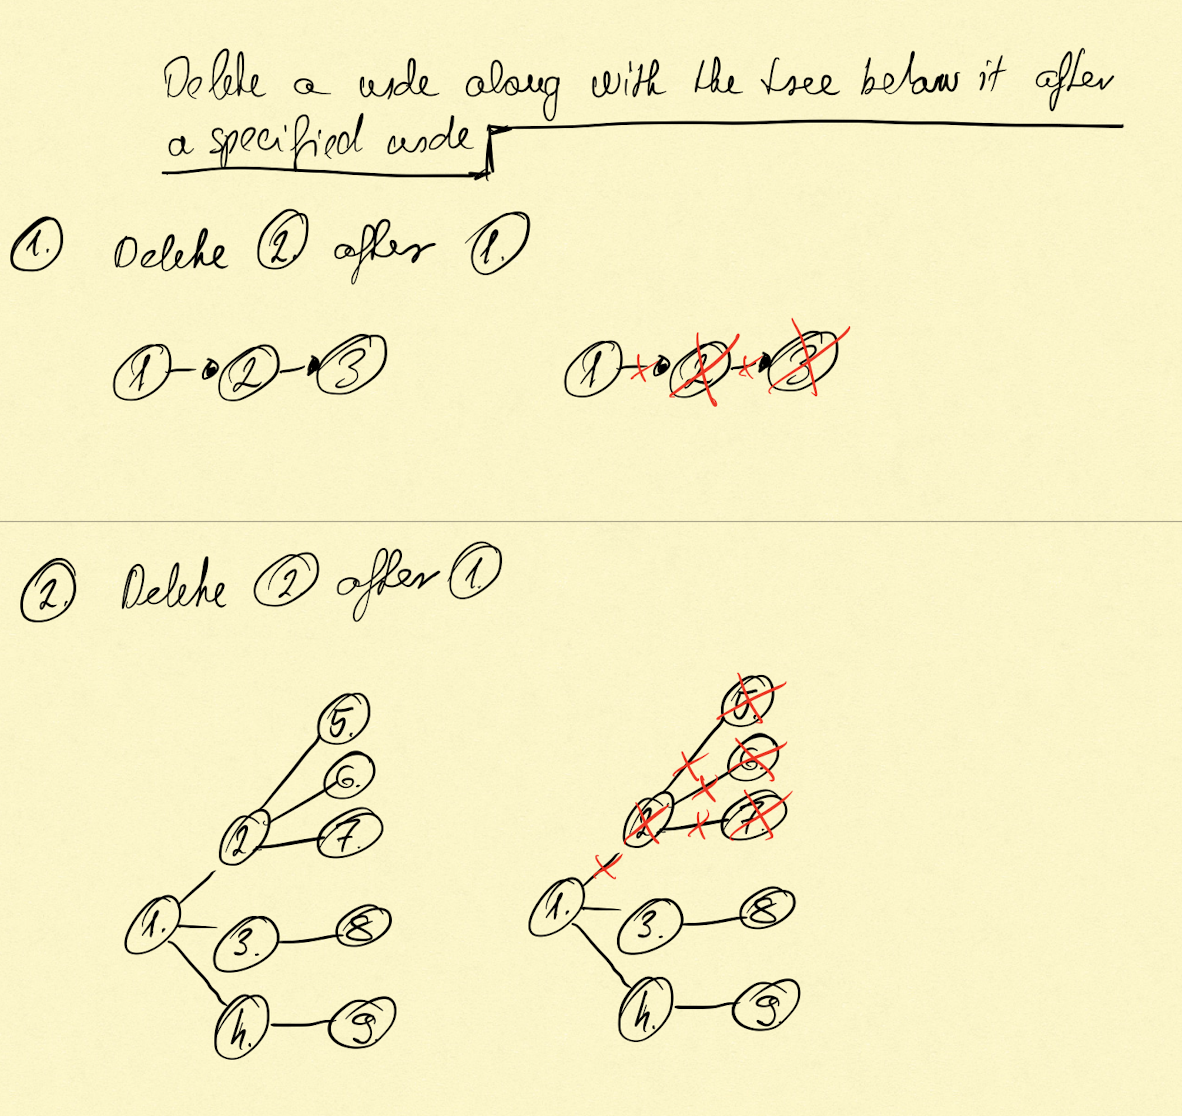 Delete a node along with the tree below it after
a specified node
1. Delete 2. after 1.
1 2 3 1 2 3
2. Delete 2 after 1.
5. 5.
6. 6.
2 7. 2 7.
1. 3. 8 1. 3. 8
4. 9 4. 9